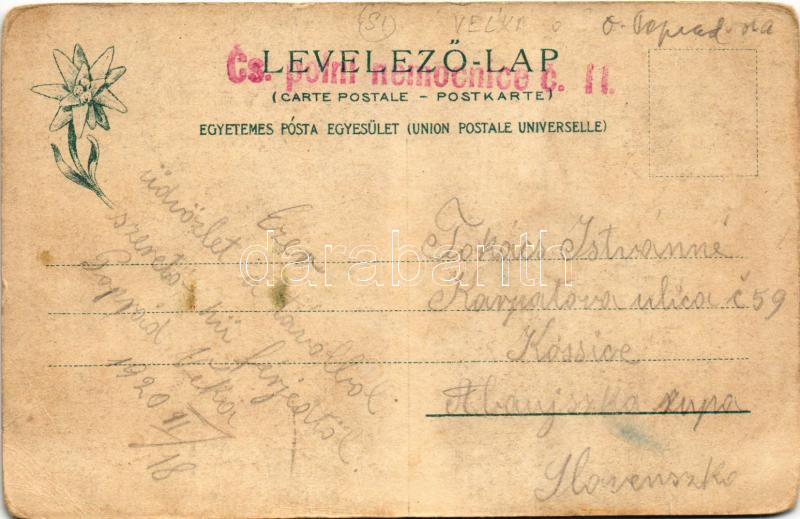 (SI) VEĽKÁ o. Poprad-ska
LEVELEZŐ-LAP
Čs. polní nemocnice č. 11.
(CARTE POSTALE – POSTKARTE)
EGYETEMES PÓSTA EGYESÜLET (UNION POSTALE UNIVERSELLE)
üdvözlet a távolból
szerető hű férjedtöl
Poprád
1920 II/18
Takács Istvánné
Karpatova ulica č 59
Kossice
Abaujszka zupa
Slovenszko
darabanth